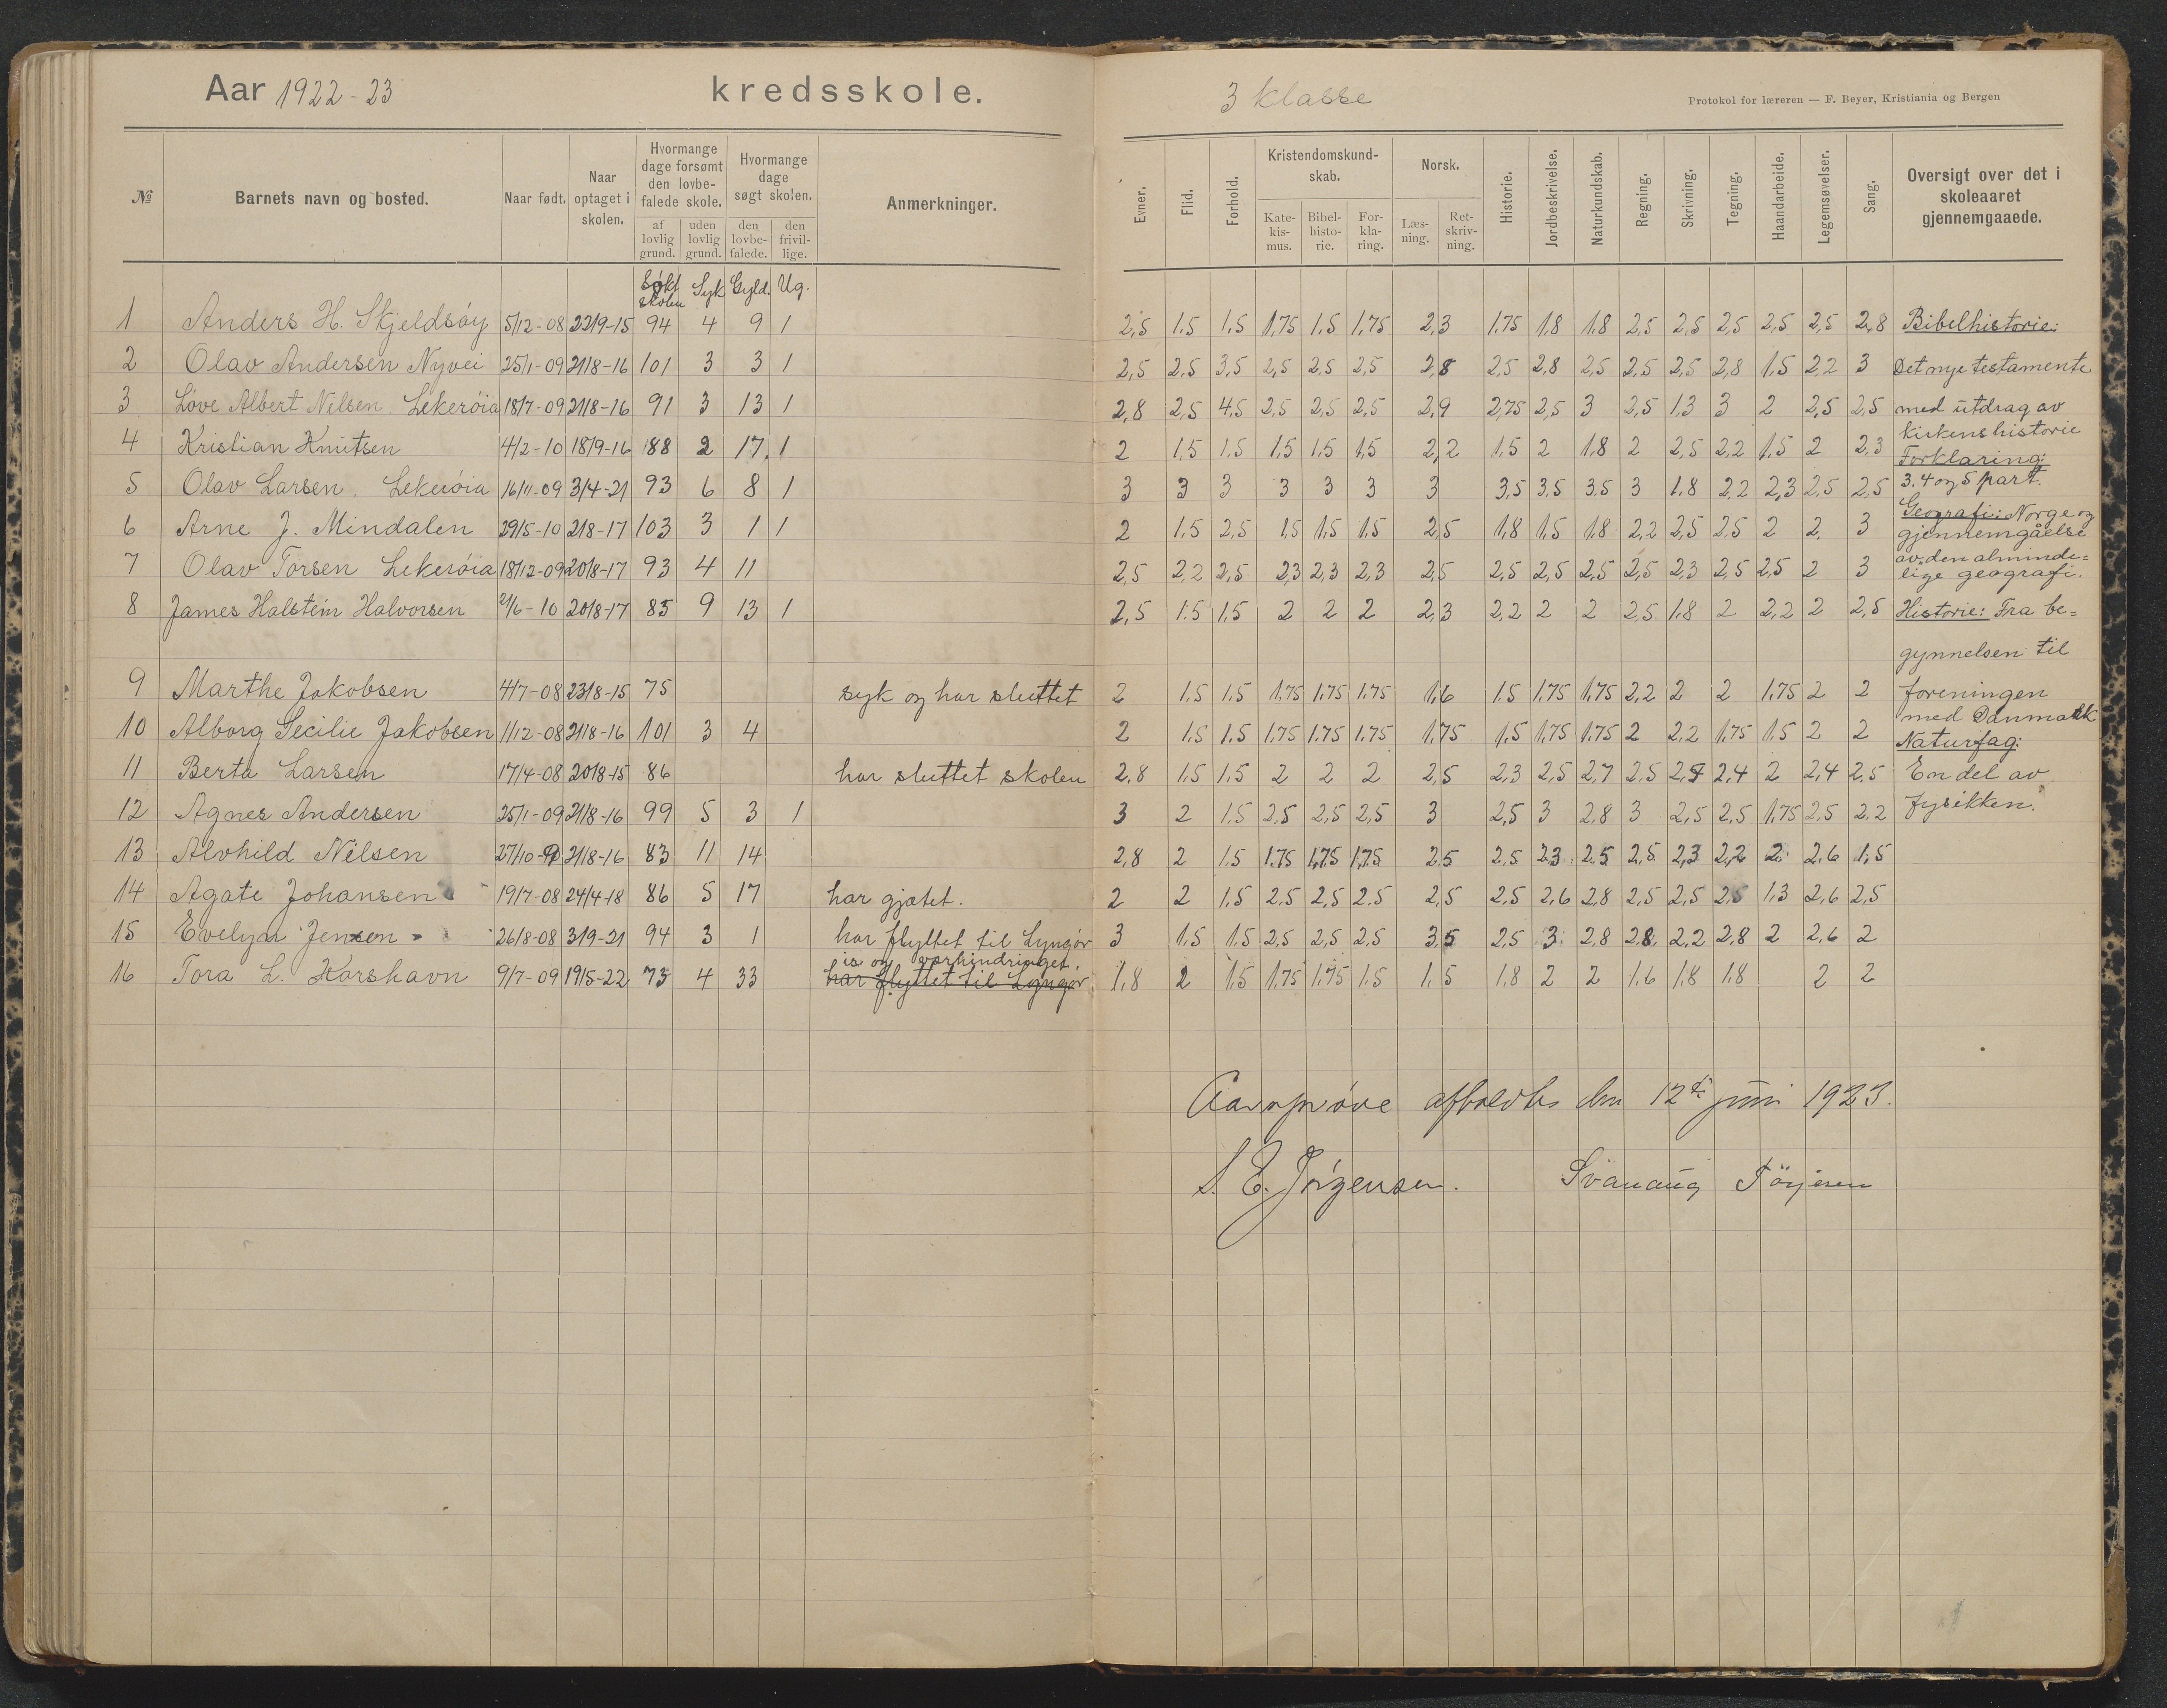 Aar 1922-23 kredsskole.
3 klasse
Protokol for læreren — F. Beyer, Kristiania og Bergen
№ Barnets navn og bosted. Naar født. Naar optaget i skolen. Hvormange dage forsømt den lovbefalede skole. af lovlig grund. uden lovlig grund. Hvormange dage søgt skolen. den lovbefalede. den frivillige. Anmerkninger.
Evner. Flid. Forhold. Kristendomskundskab. Katekismus. Bibelhistorie. Forklaring. Norsk. Læsning. Retskrivning. Historie. Jordbeskrivelse. Naturkundskab. Regning. Skrivning. Tegning. Haandarbeide. Legemsøvelser. Sang. Oversigt over det i skoleaaret gjennemgaaede.
Søkt skolen Syk Gyld. Ug.
1 Anders H. Skjeldsøy 5/12-08 22/9-15 94 4 9 1 2,5 1.5 1,5 1,75 1.5 1,75 2,3 1.75 1.8 1.8 2,5 2,5 2,5 2,5 2,5 2,8 Bibelhistorie:
2 Olav Andersen Nyvei 25/1-09 21/8-16 101 3 3 1 2,5 2.5 3,5 2,5 2.5 2,5 2,8 2,5 2,8 2,5 2,5 2,5 2,8 1.5 2,2 3 Det nye testamente
3 Love Albert Nilsen Lekerøia 18/7-09 21/8-16 91 3 13 1 2,8 2,5 4,5 2,5 2,5 2,5 2,9 2,75 2,5 3 2,5 1,3 3 2 2,5 2,5 med utdrag av
kirkens historie
4 Kristian Knutsen 4/2-10 18/9-16 88 2 17 1 2 1,5 1.5 1.5 1.5 1,5 2,2 1.5 2 1.8 2 2,5 2,2 1.5 2 2,3 Forklaring:
5 Olav Larsen. Lekerøia 16/11-09 3/4-21 93 6 8 1 3 3 3 3 3 3 3 3,5 3,5 3.5 3 1.8 2,2 2,3 2,5 2,5 3. 4 og 5 part.
Geografi: Norge og
6 Arne J. Mindalen 29/5-10 21/8-17 103 3 1 1 2 1.5 2,5 1,5 1,5 1.5 2,5 1,8 1,5 1.8 2,2 2,5 2.5 2 2 3 gjennemgåelse
av den alminde=
7 Olav Torsen Lekerøia 18/12-09 20/8-17 93 4 11 2,5 2,2 2,5 2,3 2,3 2,3 2,5 2,5 2,5 2,5 2,5 2,3 2,5 2,5 2 3 lige geografi.
8 James Halstein Halvorsen 21/6-10 20/8-17 85 9 13 1 2,5 1.5 1,5 2 2 2 2,3 2,2 2 2 2,5 1.8 2 2,2 2 2,5 Historie: Fra be=
gynnelsen til
9 Marthe Jakobsen 4/7-08 23/8-15 75 syk og har sluttet 2 1.5 1.5 1.75 1.75 1.75 1,6 1.5 1.75 1.75 2,2 2 2 1.75 2 2 foreningen
med Danmark
10 Alborg Secilie Jakobsen 11/12-08 21/8-16 101 3 4 2 1.5 1.5 1.75 1.75 1.75 1.75 1.5 1.75 1.75 2 2,2 1.75 1.5 2 2 Naturfag:
11 Berta Larsen 17/4-08 20/8-15 86 har sluttet skolen 2,8 1.5 1,5 2 2 2 2,5 2,3 2,5 2,7 2,5 2,7 2,4 2 2,4 2,5 En del av
12 Agnes Andersen 25/1-09 21/8-16 99 5 3 1 3 2 1,5 2,5 2,5 2,5 3 2,5 3 2,8 3 2,5 2,5 1,75 2,5 2,2 fysikken.
13 Alvhild Nilsen 27/10-9 21/8-16 83 11 14 2,8 2 1.5 1.75 1,75 1,75 2,5 2,5 2,3 2,5 2,5 2,3 2,2 2 2,6 1,5
14 Agate Johansen 19/7-08 24/4-18 86 5 17 har gjætet. 2 2 1,5 2,5 2,5 2.5 2,5 2,5 2,6 2,8 2,5 2,5 2,5 1.3 2,6 2,5
15 Evelyn Jensen 26/8-08 3/9-21 94 3 1 har flyttet til Lyngør 3 1.5 1.5 2,5 2,5 2,5 3,5 2,5 3 2,8 2,8 2,2 2,8 2 2,6 2
is og værhindringet.
16 Tora L. Korshavn 9/7-09 19/5-22 73 4 33 har flyttet til Lyngør 1,8 2 1.5 1,75 1,75 1.5 1,5 1,8 2 2 1.6 1,8 1.8 2 2
Aarsprøve afholdtes den 12te juni 1923.
S. E. Jørgensen. Svanaug Törjesen